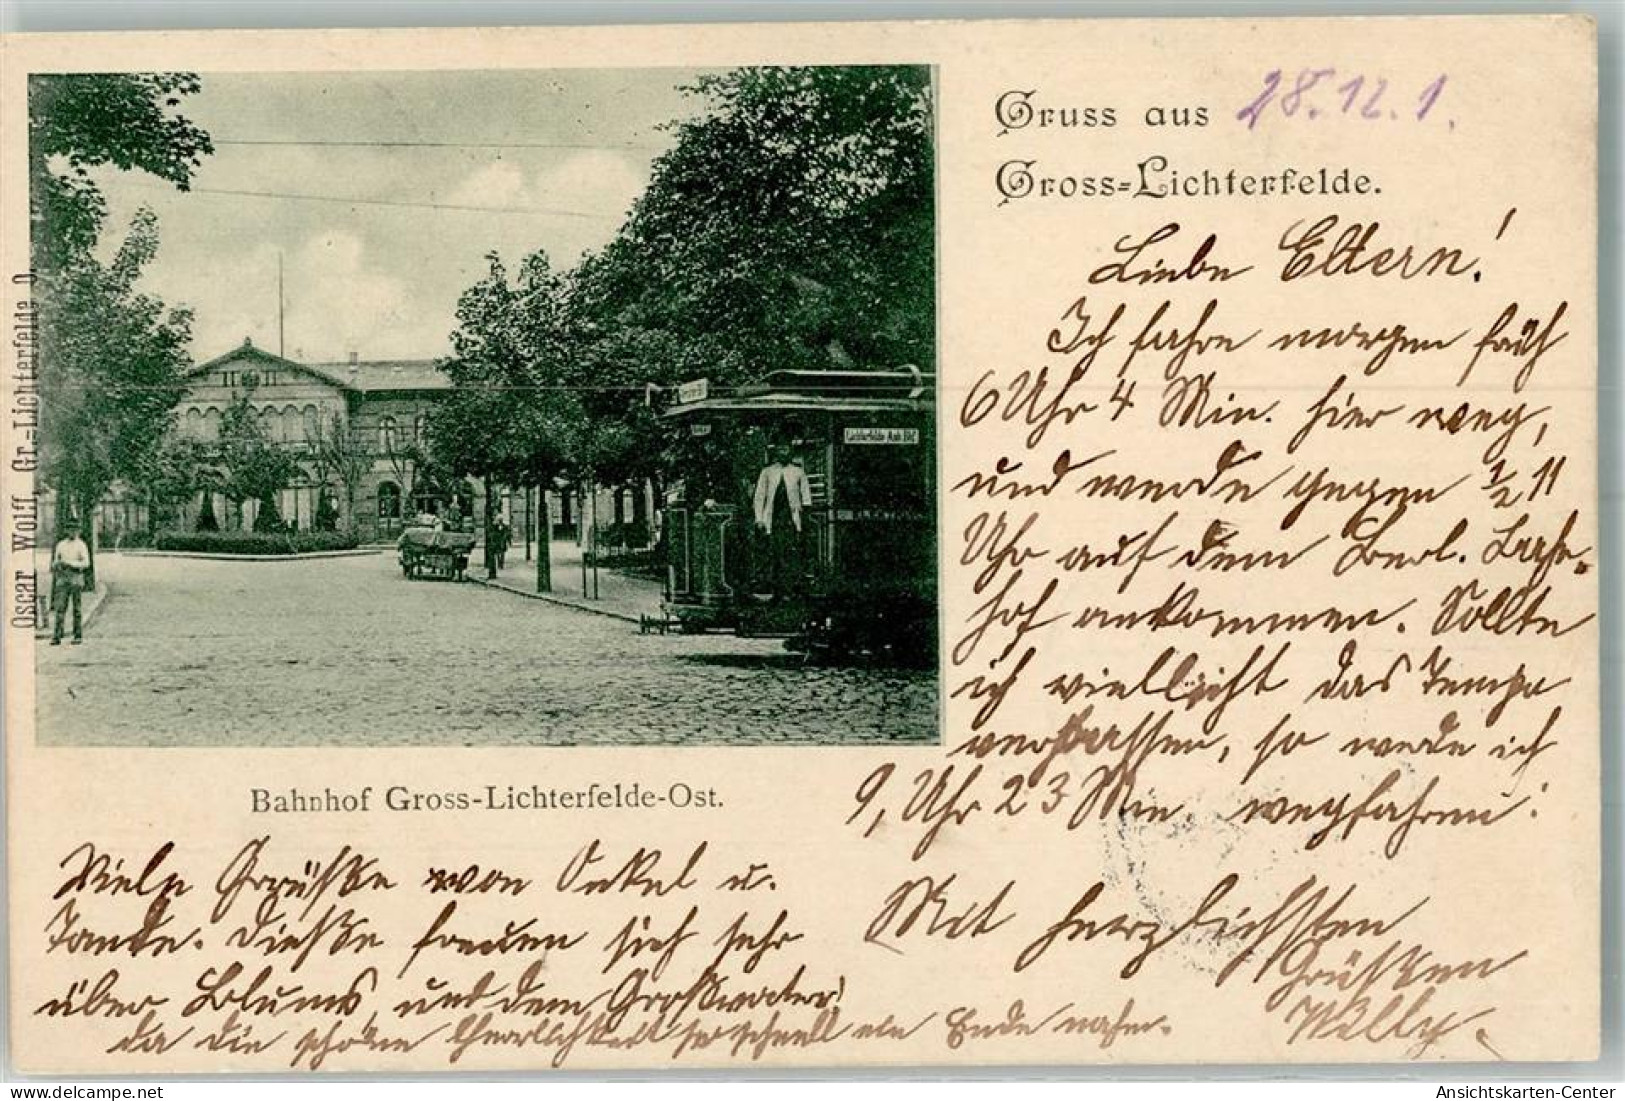 Gruss aus 28.12.1.
Gross-Lichterfelde.
Liebe Eltern!
Ich fahre morgen früh
6 Uhr 4 Min. hier weg,
und werde gegen ½ 11
Uhr auf dem Berl. Bahn-
hof ankommen. Sollte
ich vielleicht das Tempo
verpassen, so werde ich
9, Uhr 23 Min. wegfahren.
Mit herzlichsten
Grüßen
Willy.
Oscar Wolff, Gr.-Lichterfelde O.
Lichterfelde Anh. Bhf
Bahnhof Gross-Lichterfelde-Ost.
Viele Grüße von Onkel u.
Tante. Dieße freuen sich sehr
über und den Großvater!
da die schöne Herrlichkeit so schnell ein Ende nahm.
Ansichtskarten-Center
www.delcampe.net